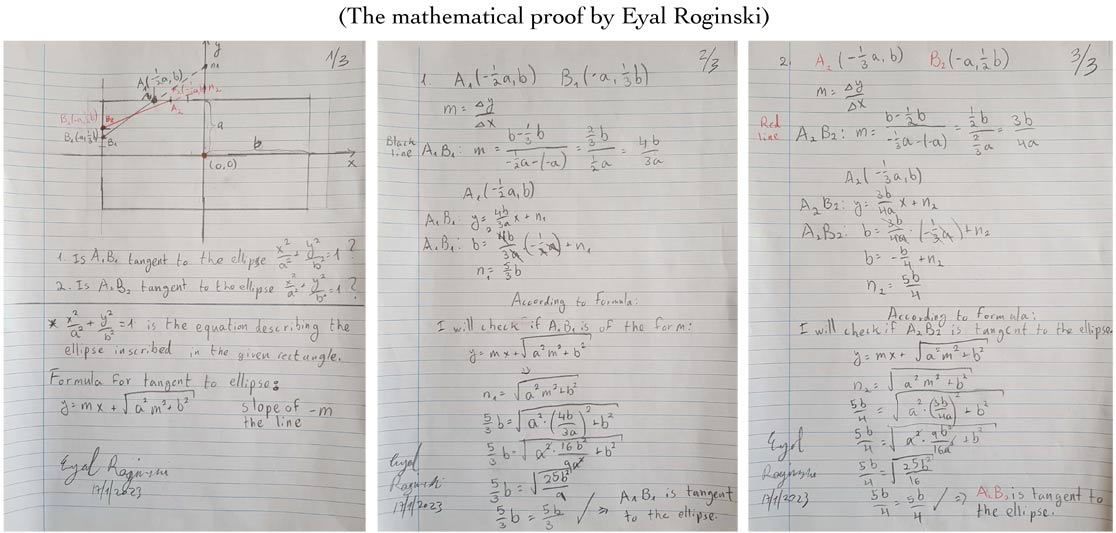 (The mathematical proof by Eyal Roginski)
1/3
y
n₁
A₁(-½a, b)
n₂
A₂
B₂(-a, ½b)
B₂
B₁(-a, ⅓b)
B₁
a
b
(0,0)
x
1. Is A₁B₁ tangent to the ellipse x²/a² + y²/b² = 1 ?
2. Is A₂B₂ tangent to the ellipse x²/a² + y²/b² = 1 ?
* x²/a² + y²/b² = 1 is the equation describing the
ellipse inscribed in the given rectangle.
Formula for tangent to ellipse:
y = mx + √(a²m² + b²) slope of - m
the line
Eyal Roginski
17/1/2023
2/3
1. A₁(-½a, b) B₁(-a, ⅓b)
m = Δy/Δx
Black line A₁B₁: m = (b - ⅓b)/(-½a - (-a)) = (⅔b)/(½a) = 4b/3a
A₁(-½a, b)
A₁B₁: y = 4b/3a x + n₁
A₁B₁: b = 4b/3a · (-½a) + n₁
n₁ = 5/3 b
According to formula:
I will check if A₁B₁ is of the form:
y = mx + √(a²m² + b²)
⇓
n₁ = √(a²m² + b²)
5/3 b = √(a² · (4b/3a)² + b²)
5/3 b = √(a² · 16b²/9a² + b²)
5/3 b = √(25b²/9)
5/3 b = 5b/3 ✓ ⇒ A₁B₁ is tangent
to the ellipse.
Eyal
Roginski
17/1/2023
3/3
2. A₂(-⅓a, b) B₂(-a, ½b)
m = Δy/Δx
Red line A₂B₂: m = (b - ½b)/(-⅓a - (-a)) = (½b)/(⅔a) = 3b/4a
A₂(-⅓a, b)
A₂B₂: y = 3b/4a x + n₂
A₂B₂: b = 3b/4a · (-⅓a) + n₂
b = -b/4 + n₂
n₂ = 5b/4
According to formula:
I will check if A₂B₂ is tangent to the ellipse.
y = mx + √(a²m² + b²)
n₂ = √(a²m² + b²)
5b/4 = √(a² · (3b/4a)² + b²)
5b/4 = √(a² · 9b²/16a² + b²)
5b/4 = √(25b²/16)
5b/4 = 5b/4 ✓ ⇒ A₂B₂ is tangent to
the ellipse.
Eyal
Roginski
17/1/2023